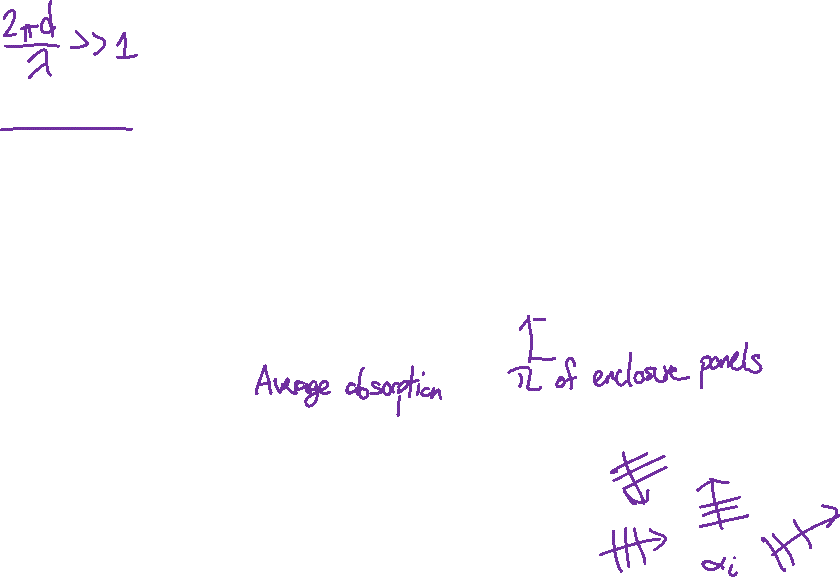 2πd
λ >> 1
Average absorption of enclosure panels
αi